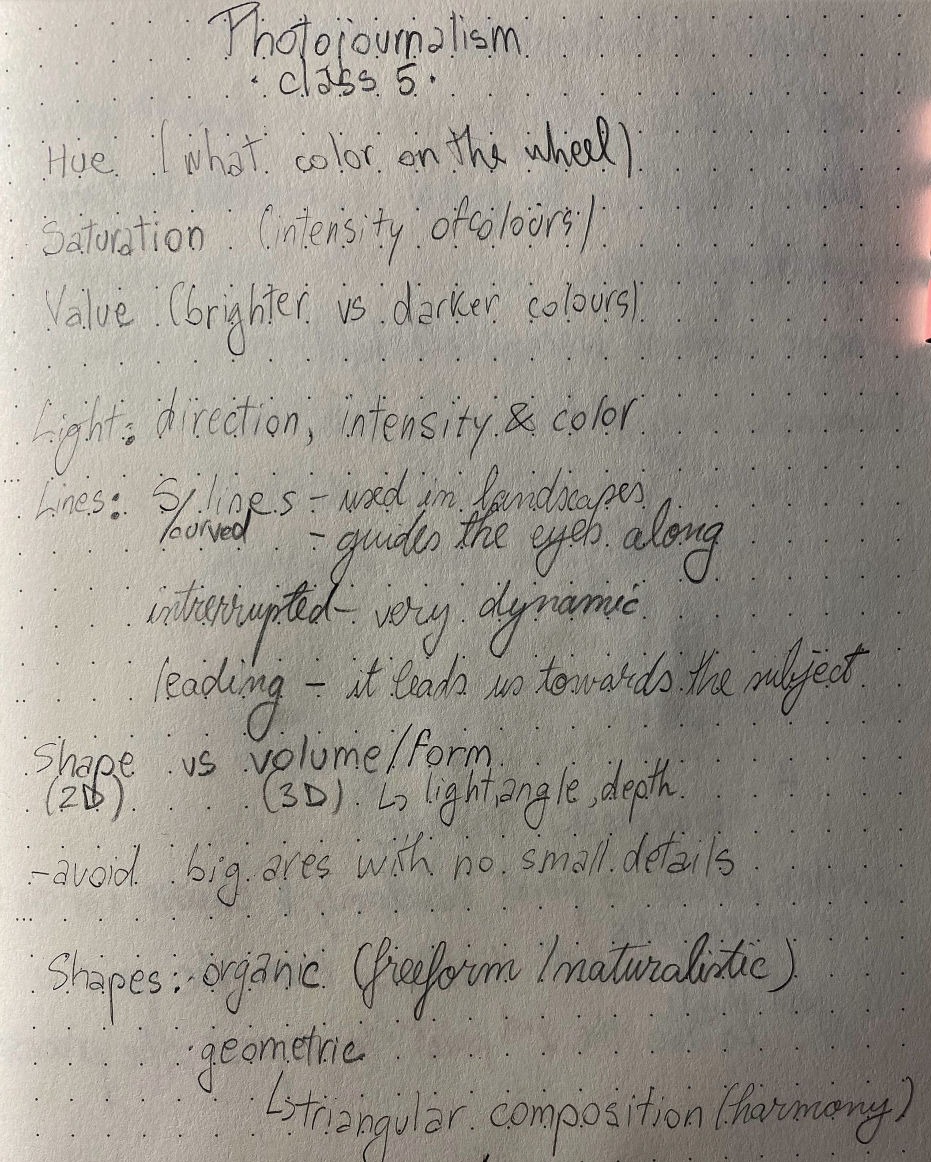 Photojournalism
· class 5 ·
Hue (what color on the wheel)
Saturation (intensity of colours)
Value (brighter vs darker colours)
Light: direction, intensity & color
Lines: S/ lines - used in landscapes
/curved - guides the eyes along
intrerrupted - very dynamic
leading - it leads us towards the subject
Shape vs volume/form
(2D) (3D) ↳ light, angle, depth
-avoid big ares with no small details
Shapes: · organic (freeform / naturalistic)
· geometric
↳ triangular composition (harmony)